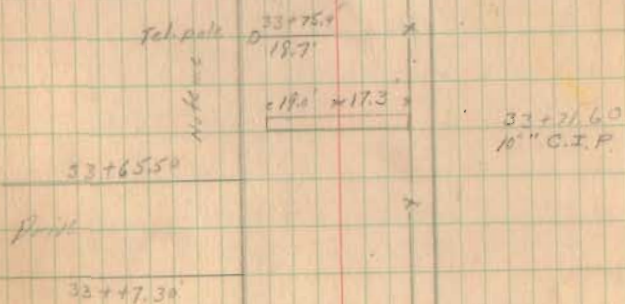 Tel. pole 33+75.4
18.7'
19.0' 17.3'
33+71.60
10" C.I.P.
33+65.50
Drive
33++7.30'